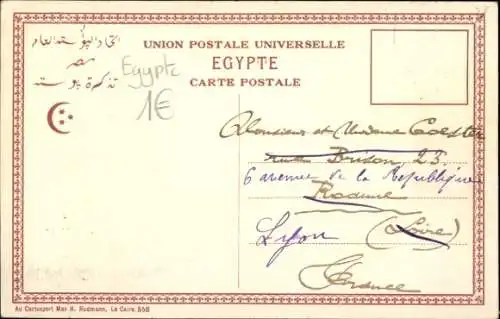 UNION POSTALE UNIVERSELLE
اتحاد البوسته العام
EGYPTE
مصر
CARTE POSTALE
تذكرة بوسته
Egypte
1€
Monsieur et Madame
rue Brison, 23.
6 avenue de la République
Roanne
Lyon (Loire)
France
Au Cartosport Max H. Rudmann, Le Caire 558